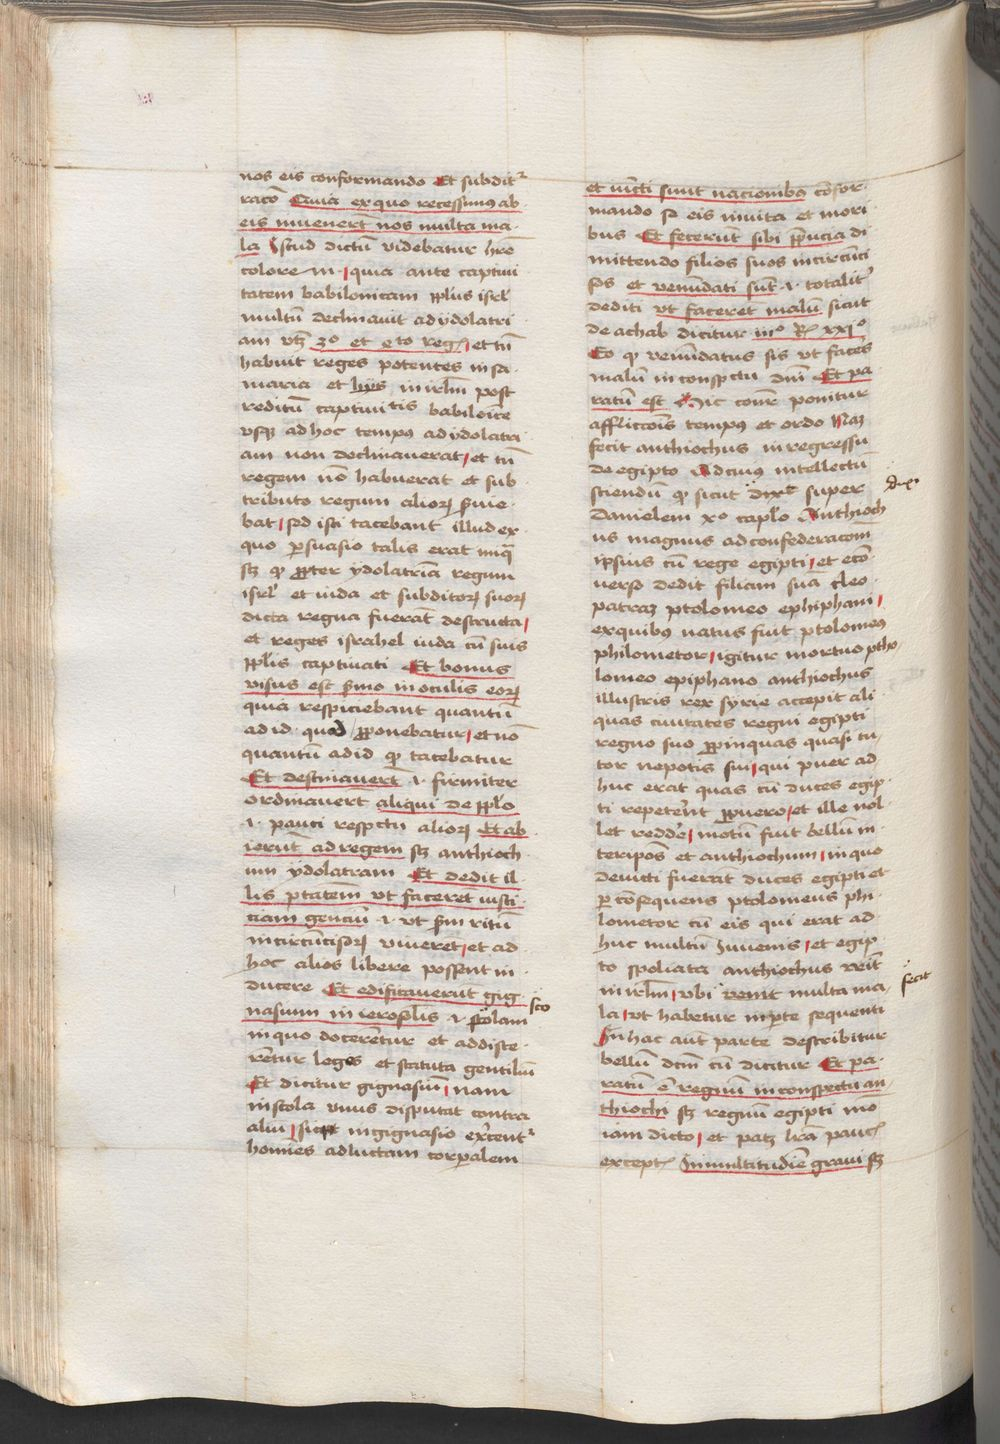 nos eis conformando Et subditᷣ
racō Quia ex quo recessimꝰ ab
eis inuenerūt nos multa ma-
la Istud dictū videbatur hr̄e
colorem quia ante captiui
tatem babilonicam ppl̄us isrl̄
multū declinauit ad ydolatri
am vtꝫ 3º et 4to regꝫ et tn̄
habuit reges potentes in sa-
maria et hijs in irl̄m post
reditū captiuitatis babilonice
vsqꝫ ad hoc tempꝰ ad ydolatri
am non declinauerat et tn̄
regem nō habuerat et sub
tributo regum alioꝝ s̄uie-
bat sed isti tacebant illud ex
quo ꝑsuasio talis erat iniq̄
sꝫ ꝙ ꝓpter ydolatriā regum
isrl̄ et iuda et subditoꝝ suoꝝ
dicta regna fuerāt destructa
et reges israhel iuda cū suis
ppl̄is captiuati Et bonus
visus est s̄mo in oculis eoꝝ
quia respiciebant quantū
ad id quod ꝓponebatur et nō
quantū ad id ꝙ tacebatur
Et destinauerūt .i. firmiter
ordinauerūt aliqui de ppl̄o
.i. pauci respectu alioꝝ Et ab-
ierūt ad regem sꝫ anthioch
um ydolatram Et dedit il-
lis ptātem vt facerēt iusti-
ciam genciū .i. vt s̄m ritū
incircūcisoꝝ viuerēt et ad
hoc alios libere possent in-
ducere Et edificauerūt gig-
nasium in ierosol̄is .i. scolam
in quo docerētur et addisce-
rētur leges et statuta gentiliū
Et dicitur gignasiū nam
in scola vnus disputat contra
aliū sicut in gignasio exercentᷣ
homīes ad luctam corꝑalem
sco
et iūcti sunt nacionibꝰ cōfor-
mando se eis in vita et mori-
bus Et fecerūt sibi p̄pucia di-
mittendo filios suos incircūci-
sos et venūdati sūt .i. totalit̄
dediti vt facerēt malū sicut
de achab dicitur iijº Rꝫ xxjº
Eo ꝙ venūdatus sis vt faceres
malū in conspectu dn̄i Et pa-
ratū est Hic conr̄ ponitur
afflictōis tempꝰ et ordo Naꝫ
fecit anthiochus in regressu
de egipto Ad cuiꝰ intellectū
sciendū ꝙ sicut dixi super
Danielem xº capl̄o Anthioch
us magnus ad confederacōem
ipsius cū rege egipti et ecō-
uerso dedit filiam suā cleo-
patraꝫ ptolomeo ephiphani
ex quibꝰ natus fuit ptolomeꝰ
philometor igitur mortuo ptho-
lomeo epiphano anthiochus
illustris rex syrie accepit ali-
quas ciuitates regni egipti
regno suo ꝓpinquas quasi tu-
tor nepotis sui qui puer ad-
huc erat quas cū duces egip-
ti repeterēt ꝓ puero et ille nol-
let reddere motū fuit bellū in-
ter ipsos et anthiochum in quo
deuicti fuerāt duces egipti et
ꝑ cōsequens ptolomeus phi-
lometor cū eis qui erat ad-
huc multū Iuuenis et egip-
to spoliata anthiochus venit
in irl̄m vbi fecit multa ma-
la vt habetur in ꝑte sequenti
In hac aūt parte describitur
bellū dcm̄ cū dicitur Et pa-
ratū ē regnū in conspectu an-
thiochi sꝫ regnū egipti mō
iam dicto et patꝫ lr̄a paucꝭ
exceptꝭ In multitudīe graui sꝫ
dixi
fecit